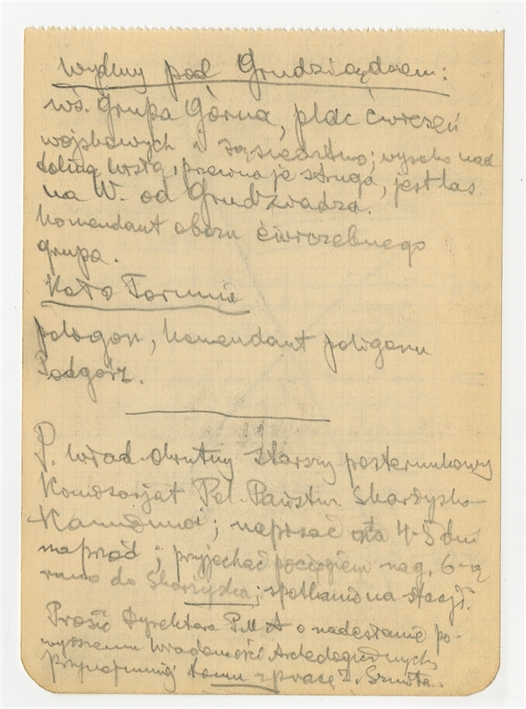 Wydmy pod Grudziądzem:
wś. Grupa Górna, plac ćwiczeń
wojskowych i sąsiedztwo; wysoko nad
doliną Wisły, przerwana je struga, jest las
na W. od Grudziądza.
Komendant obozu ćwiczebnego
Grupa.
Koło Torunia
poligon, Komendant poligonu
Podgórz.
P. Wład. Okrutny starszy posterunkowy
Komisarjat Pol. Państw. Skarżysko
Kamienna; napisać na 4-5 dni
naprzód; przyjechać pociągiem na g. 6-ą
rano do Skarżyska; spotkanie na stacji.
Prosić Dyrektora P.M.A o nadesłanie po-
wyższemu Wiadomości Archeologicznych
Przynajmniej tomu z pracą Z. Szmita.